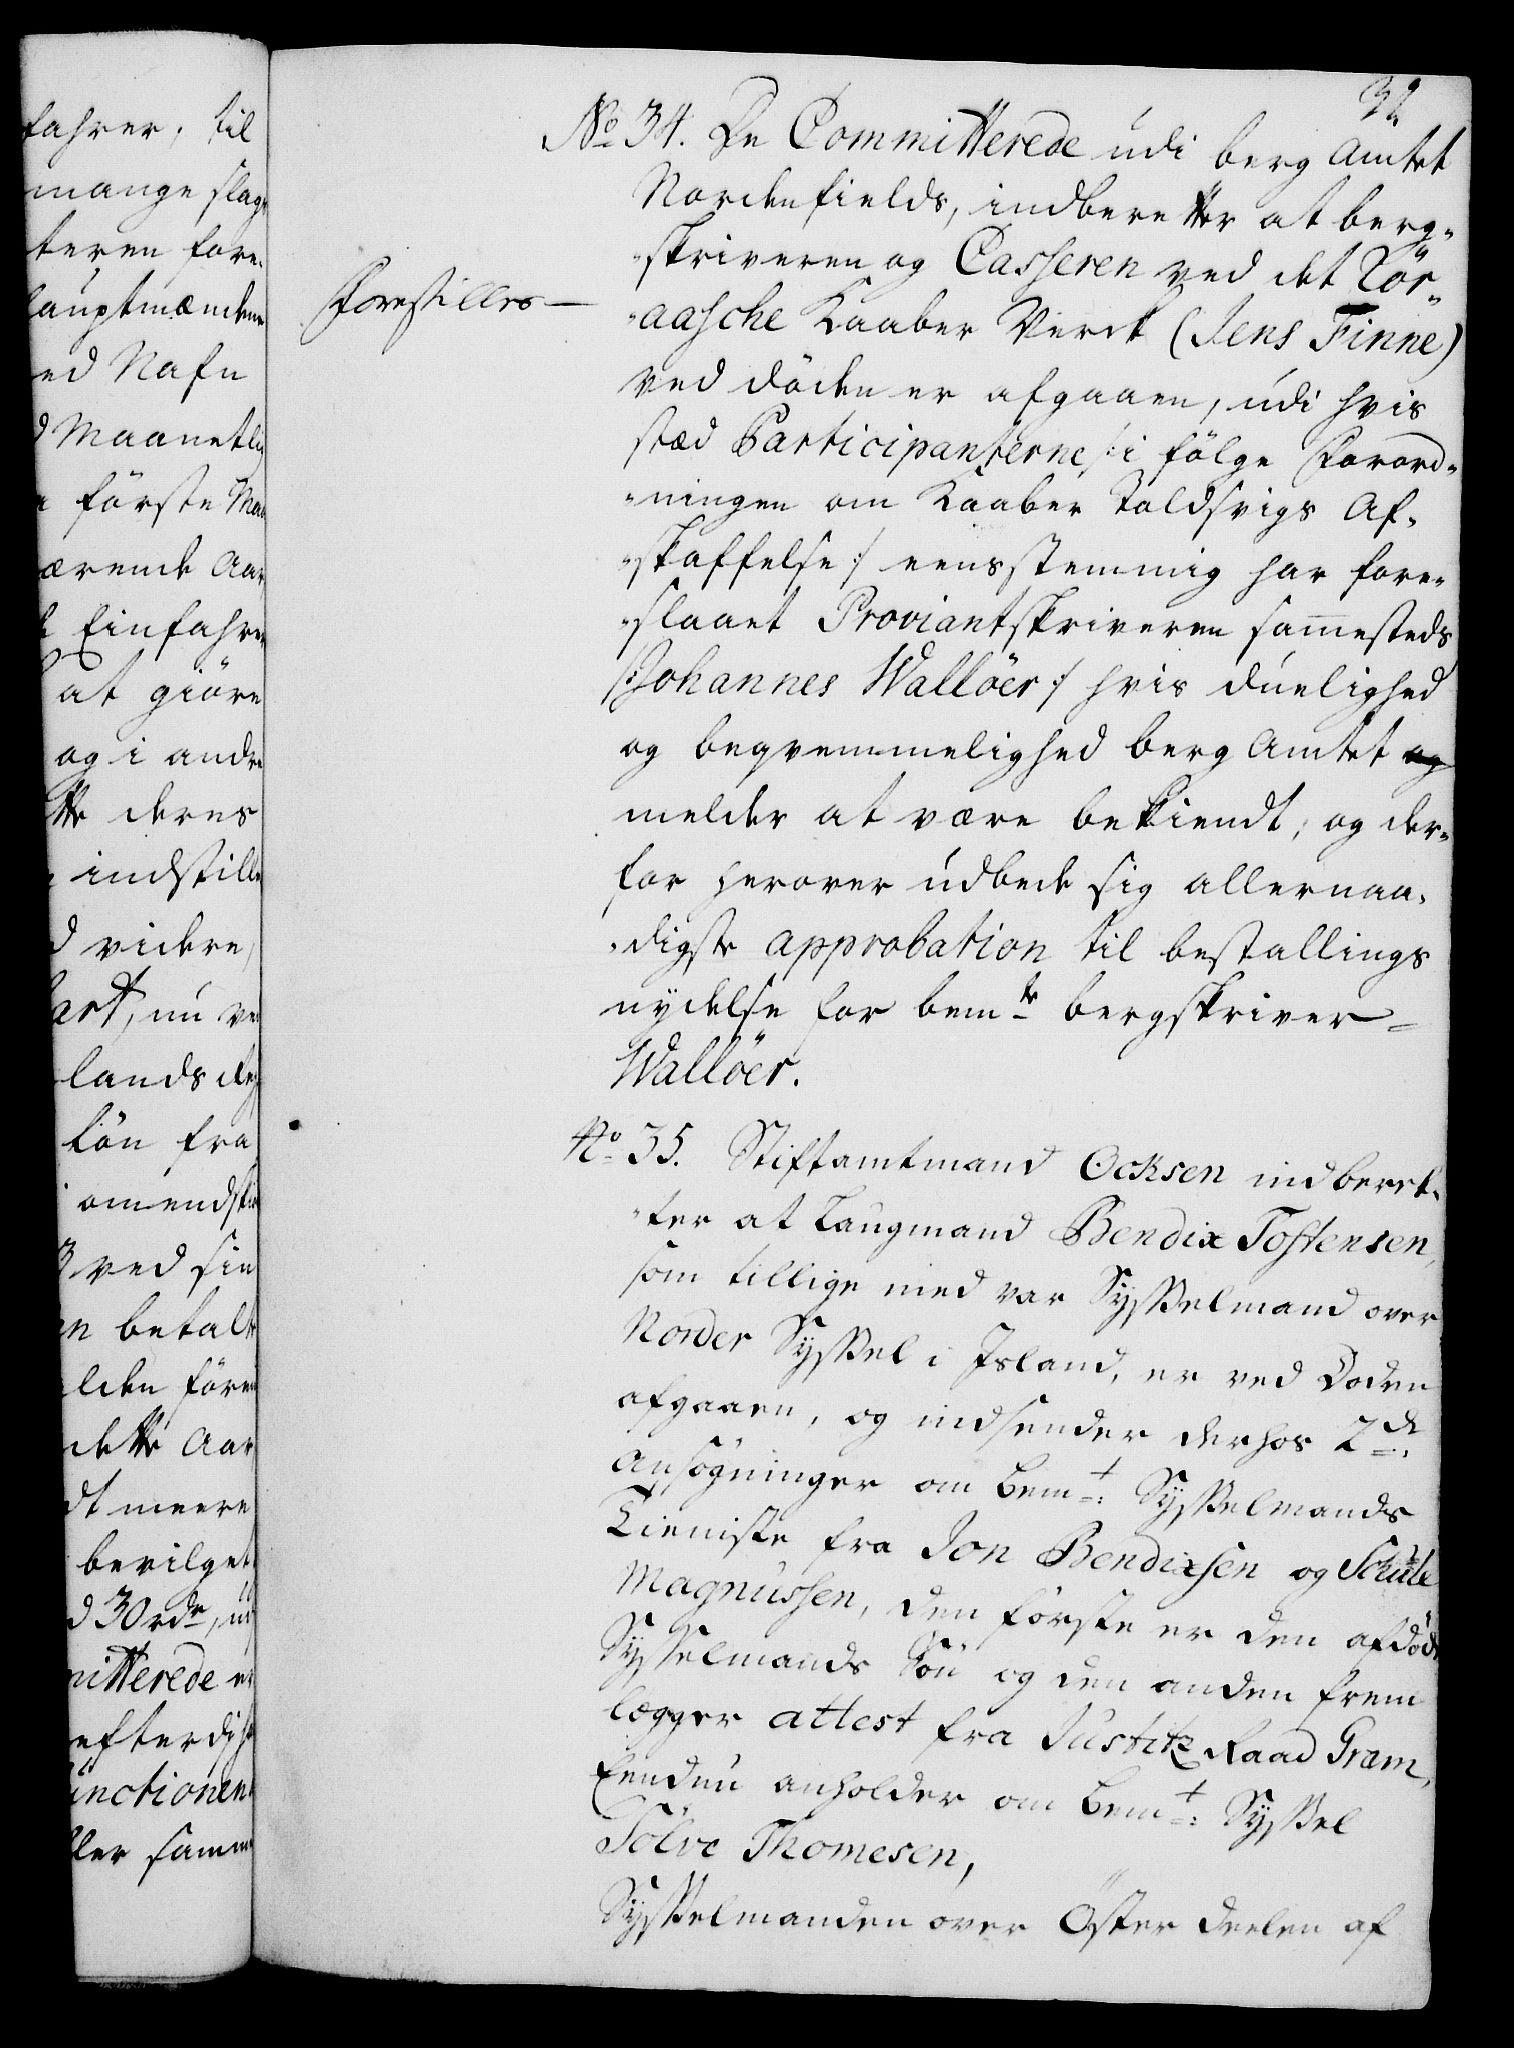 fahrer, til
mange slag
teren fore
hauptmændene
ed Nafn
d Maanetlig
første Maa
ærende Aar
Einfahrer
at giöre
og i andre
tte deres
indstille
d videre,
art, nu ve
lands Reg
Lön fra
omendski
3 ved sin
en betalt
lden fören
dette Aar
dt meere
bevilget
d 30 rdr, ud
mitterede er
efterdi h
unctionen
ller samme
32
No 34. De Committerede udi berg Amtet
Nordenfields, indberetter at berg-
"skriveren og Casseren ved det Rör-
"aasche Kaaber Verck (Jens Finne)
Forestilles
ved döden er afgaaen, udi hvis
stæd Participanterne /: i fölge Forord-
"ningen om Kaaber Toldsvigs Af-
"skaffelse :/ eensstemmig har fore-
"slaaet Proviantskriveren sammesteds
/: Johannes Wallöer :/ hvis duelighed
og beqvemmelighed berg Amtet og
melder at være bekiendt, og der-
for herover udbede sig allernaa-
"digste approbation til bestallings
nydelse for bemte bergskriver
Wallöer.
No 35. Stiftamtmand Ocksen indberet-
"ter at Laugmand Bendix Tostensen,
som tillige med var Sysselmand over
Norder Syssel i Island, er ved Döden
afgaaen, og indsender derhos 2de
Ansögninger om bemt: Sysselmands
Tieniste fra Jon Bendixsen og Schule
Magnussen, den förste er den afdöde
Sysselmands Sön og den anden frem
lægger attest fra Justitz Raad Gram,
Endnu anholder om bemt: Syssel
Sölve Thomesen,
Sysselmanden over Öster Deelen af